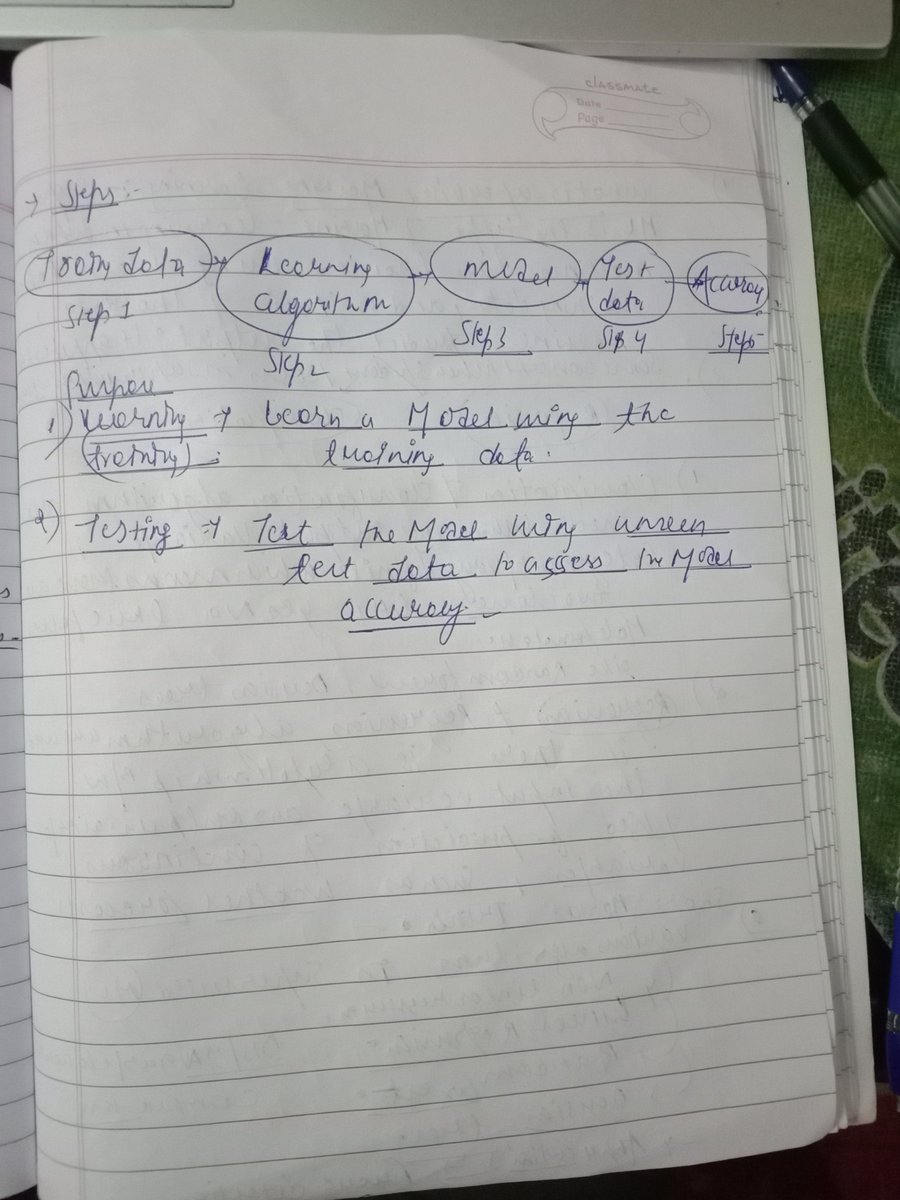 classmate
Date
Page
→ Steps :-
Train data → Learning algorithm → Model → Test data → Accuracy
Step 1 Step 2 Step 3 Step 4 Step 5
Purpose
1) Learning → Learn a Model using the
(training) : training data.
2) Testing → Test the Model using unseen
test data to assess the Model
accuracy.